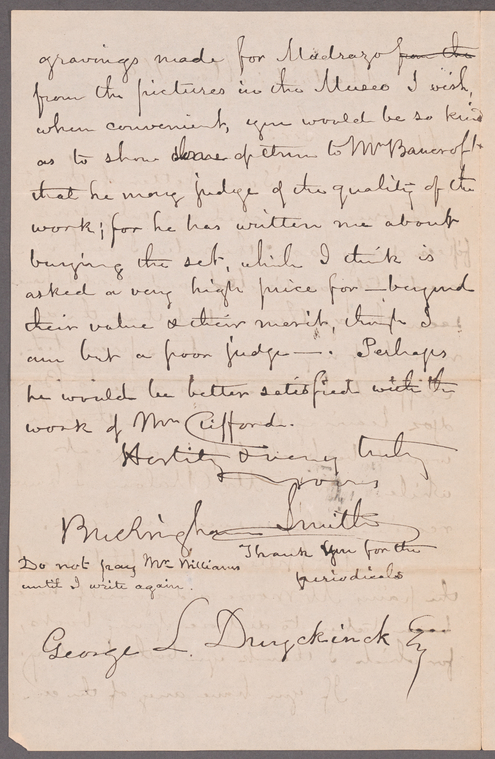 gravings made for Madrazo from the
from the pictures in the Museo I wish,
when convenient, you would be so kind
as to show some of them to Mr Bancroft
that he may judge of the quality of the
work; for he has written me about
buying the set, which I think is
asked a very high price for—beyond
their value & their merit, though I
am but a poor judge—. Perhaps
he would be better satisfied with the
work of Mr Clifford.
Hastily & very truly
yours
Buckingham Smith
Thank you for the
periodicals
Do not pay Mr Williams
until I write again.
George L. Duyckinck Esq